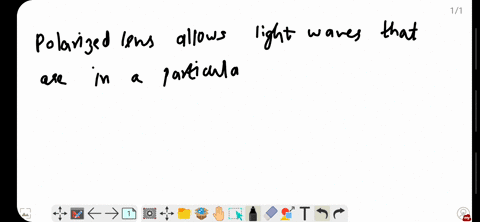 1/1
Polarized lens allows light waves that
are in a particula